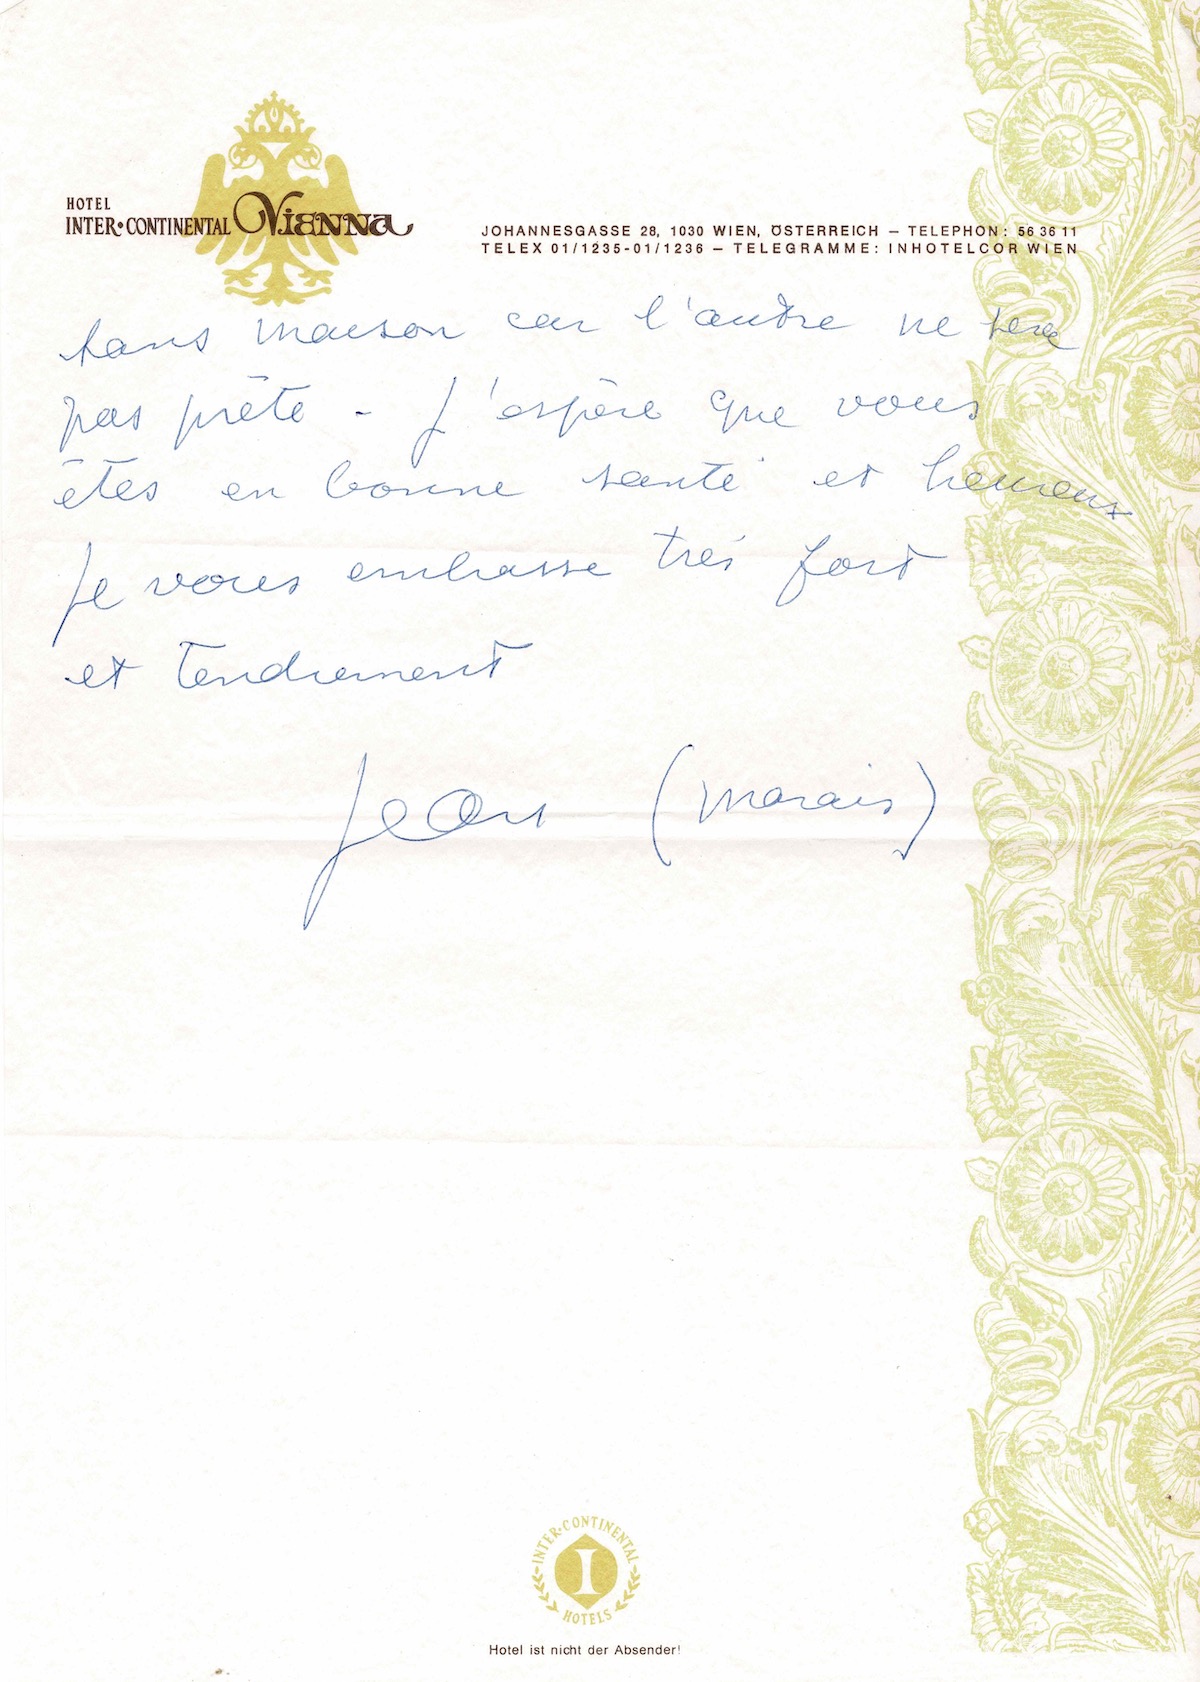 HOTEL
INTER•CONTINENTAL Vienna
JOHANNESGASSE 28, 1030 WIEN, ÖSTERREICH – TELEPHON: 56 36 11
TELEX 01/1235-01/1236 – TELEGRAMME: INHOTELCOR WIEN
sans maison car l'autre ne sera
pas prête - J'espère que vous
êtes en bonne santé et heureux
Je vous embrasse très fort
et tendrement
Jean (Marais)
INTER•CONTINENTAL
I
HOTELS
Hotel ist nicht der Absender!